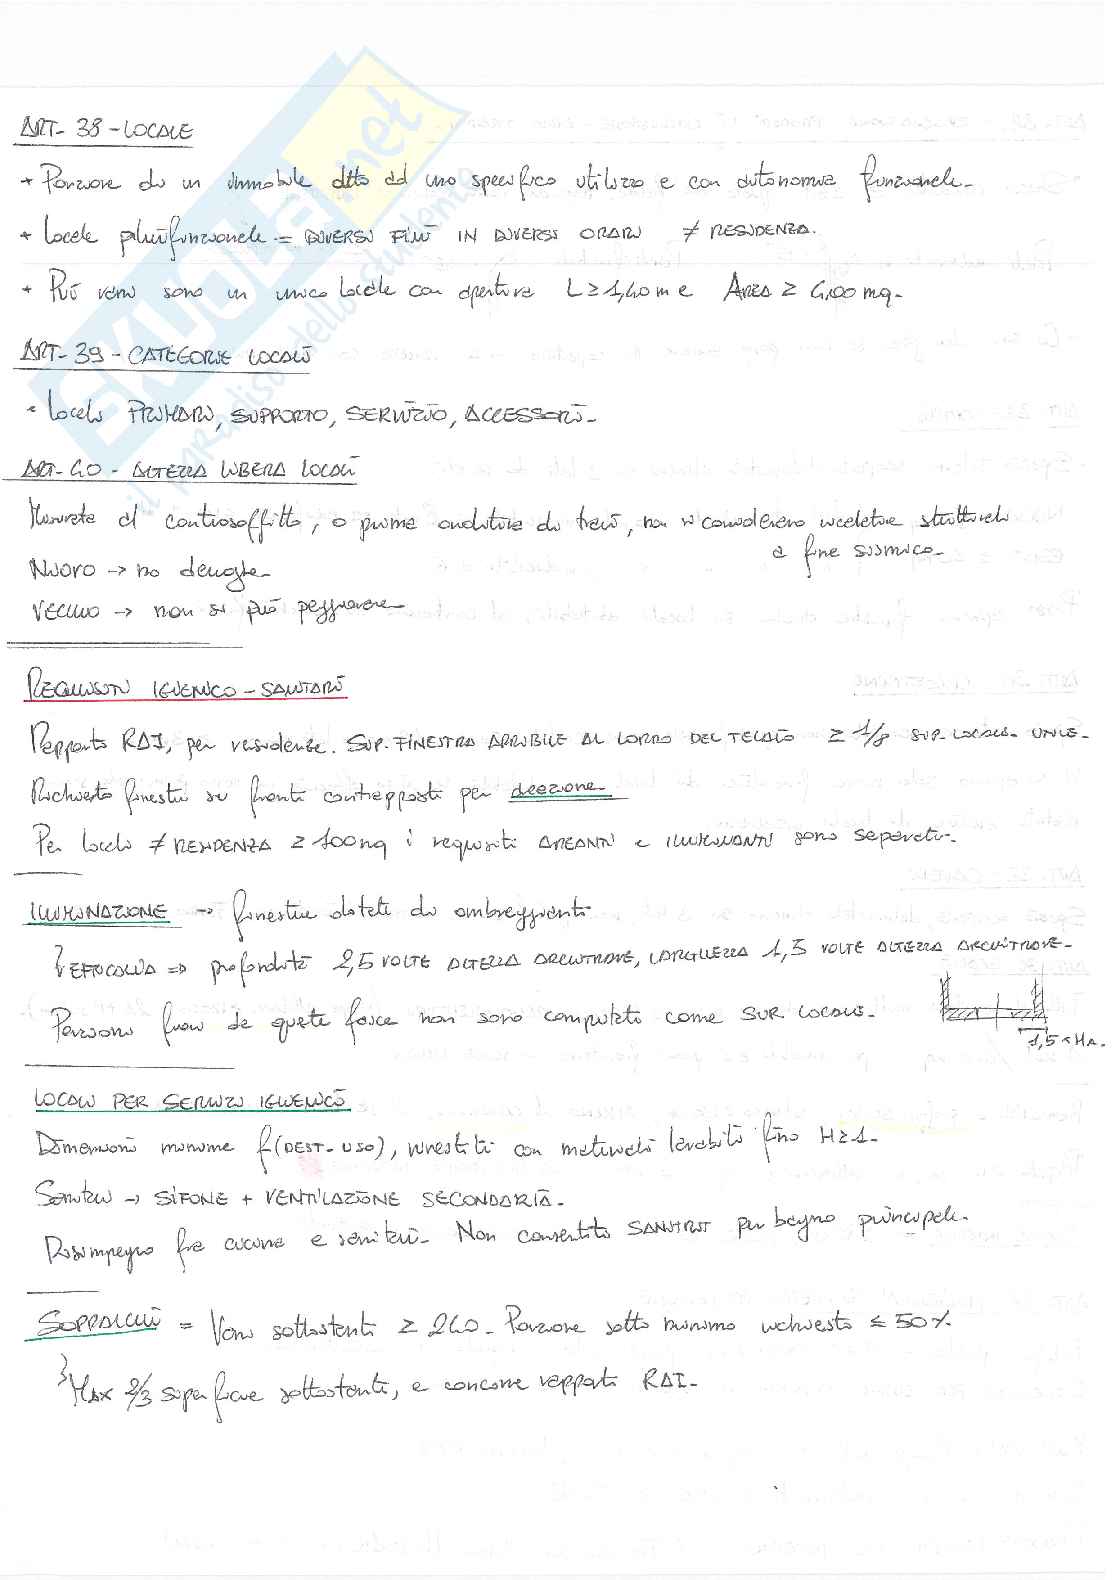 ART- 38 - LOCALE
+ Porzione di un immobile atto ad uno specifico utilizzo e con autonomia funzionale-
+ locale plurifunzionale = DIVERSI FINI IN DIVERSI ORARI ≠ RESIDENZA.
+ Più vani sono un unico locale con apertura L ≥ 1,40 m e AREA ≥ 4,00 mq-
ART- 39 - CATEGORIE LOCALI
- locali PRIMARI, SUPPORTO, SERVIZIO, ACCESSORI-
ART- 40 - ALTEZZA LIBERA LOCALI
Misurata al controsoffitto, o prima orditura di travi, non si considerano strutturali
a fine sismico-
NUOVO → no deroghe-
VECCHIO → non si può peggiorare-
REQUISITI IGIENICO-SANITARI
Rapporto RAI, per residenze. SUP. FINESTRA APRIBILE AL LORDO DEL TELAIO ≥ 1/8 SUP. LOCALE- UTILE-
Richiesto finestre su fronti contrapposti per areazione-
Per locali ≠ RESIDENZA ≥ 100 mq i requisiti AREANTI e ILLUMINANTI sono separati-
ILLUMINAZIONE → finestre dotate di ombreggianti
EFFICACIA => profondità 2,5 VOLTE ALTEZZA ARCHITRAVE, LARGHEZZA 1,5 VOLTE ALTEZZA ARCHITRAVE-
Porzioni fuori da queste fasce non sono computate come SUP. LOCALE-
1,5 × HA.
LOCALI PER SERVIZI IGIENICI
Dimensioni minime f(DEST- USO), rivestiti con materiali lavabili fino H ≥ 1-
Sanitari → SIFONE + VENTILAZIONE SECONDARIA-
Disimpegno fra cucina e sanitari- Non consentito SANITRIT per bagno principale-
SOPPALCHI = Vani sottostanti ≥ 240- Porzione sotto minimo richiesto ≤ 50%
MAX 2/3 superficie sottostante, e concorre rapporti RAI-
SKUOLA.net
il paradiso dello studente